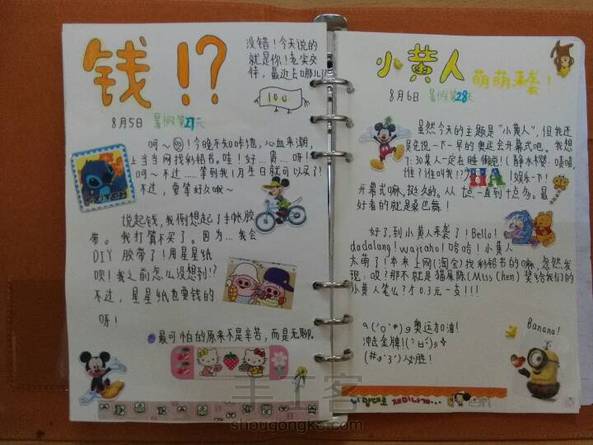 钱!?
没错！今天说的
就是你！老实交
待，最近去哪儿
100
8月5日 暑假第27天
呵～ ！今晚不知咋滴，心血来潮，
上当当网找彩铅书。哇！好…贵…呀！
呵～不过……等到我1月生日就可以买了！
不过，要等好久哦～
说起钱，我倒想起了手帐胶
带。我打算不买了。因为…我会
DIY 胶带了！用星星纸
呗！我之前怎么没想到！？
不过，星星纸也要钱的
呀！
最可怕的原来不是辛苦，而是无聊。
小黄人 萌萌来袭！
8月6日 暑假第28天
虽然今天的主题是“小黄人”，但我还
是先说一下一早的奥运会开幕式吧。我想
HA
开幕式嘛，挺久的。从 一直到十点多。最
好看的就是桑巴舞！
好了，到小黄人来袭了！Bello!
小黄人
太萌了！本来上网(淘宝)找彩铅书的嘛，忽然发
现，哎？那不就是猫屎陈(Miss Chen)奖给我们的
小黄人笔么？才0.3元一支！！！
奥运加油！
冲击金牌！
必胜！
Banana!
手工客
shougongke.com